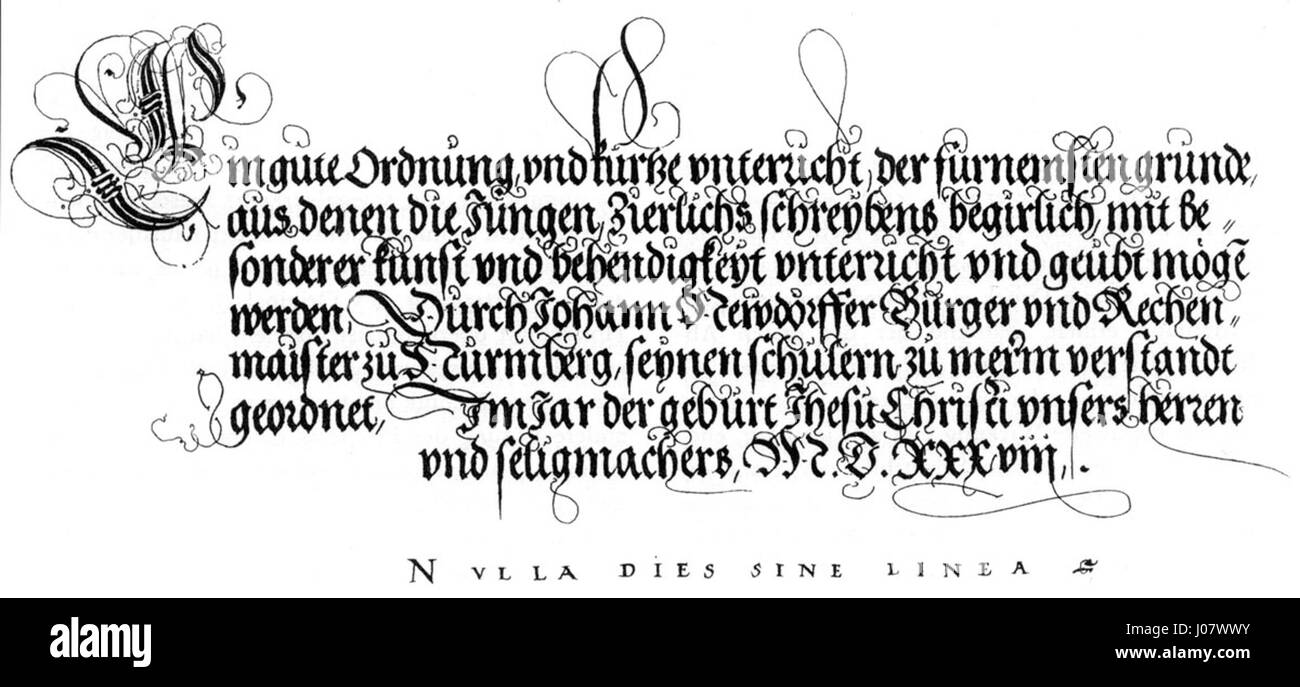 Ein gute Ordnung, vnd kurtze vnterricht, der furnemsten grunde,
aus denen die Jungen, Zierlichs schreybens begirlich, mit be=
sonderer kunst vnd behendigkeyt vnterricht vnd geůbt mögē
werden, Durch Johann Newdörffer Burger vnd Rechen=
maister zu Nurmberg, seynen schulern zu merm verstandt
geordnet, Im Jar der geburt Jhesu Christi vnsers herren
vnd seligmachers, M. D. XXXviij, .
NVLLA DIES SINE LINEA
alamy
Image ID: J07WWY
www.alamy.com